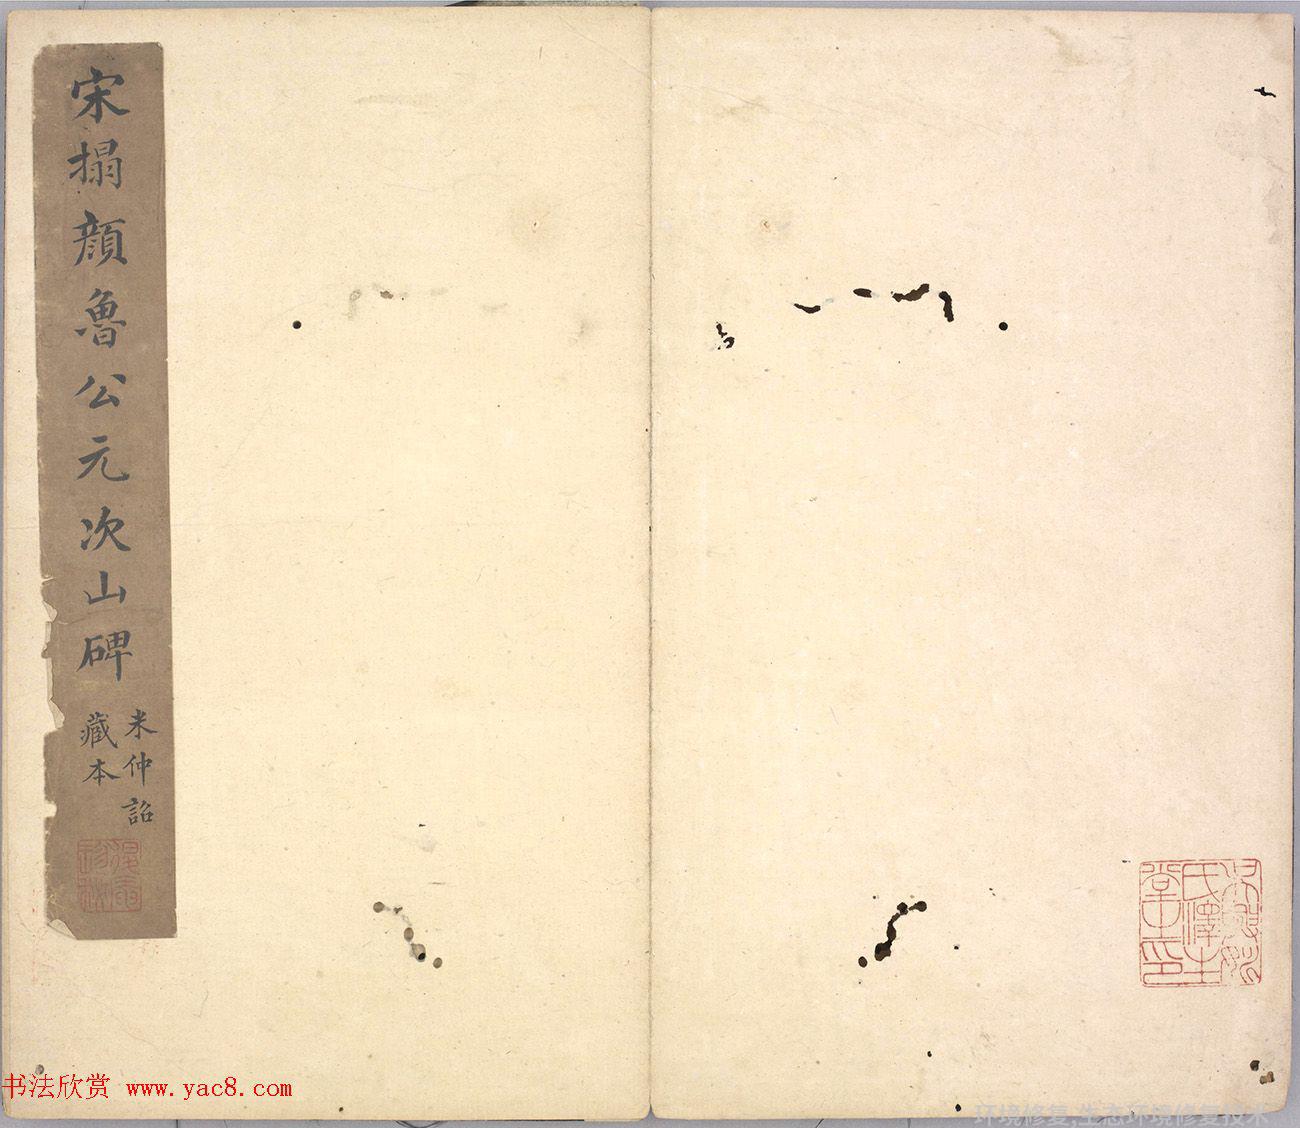 宋搨顏魯公元次山碑
米仲詔
藏本
书法欣赏 www.yac8.com
环境修复,生态环境修复技术